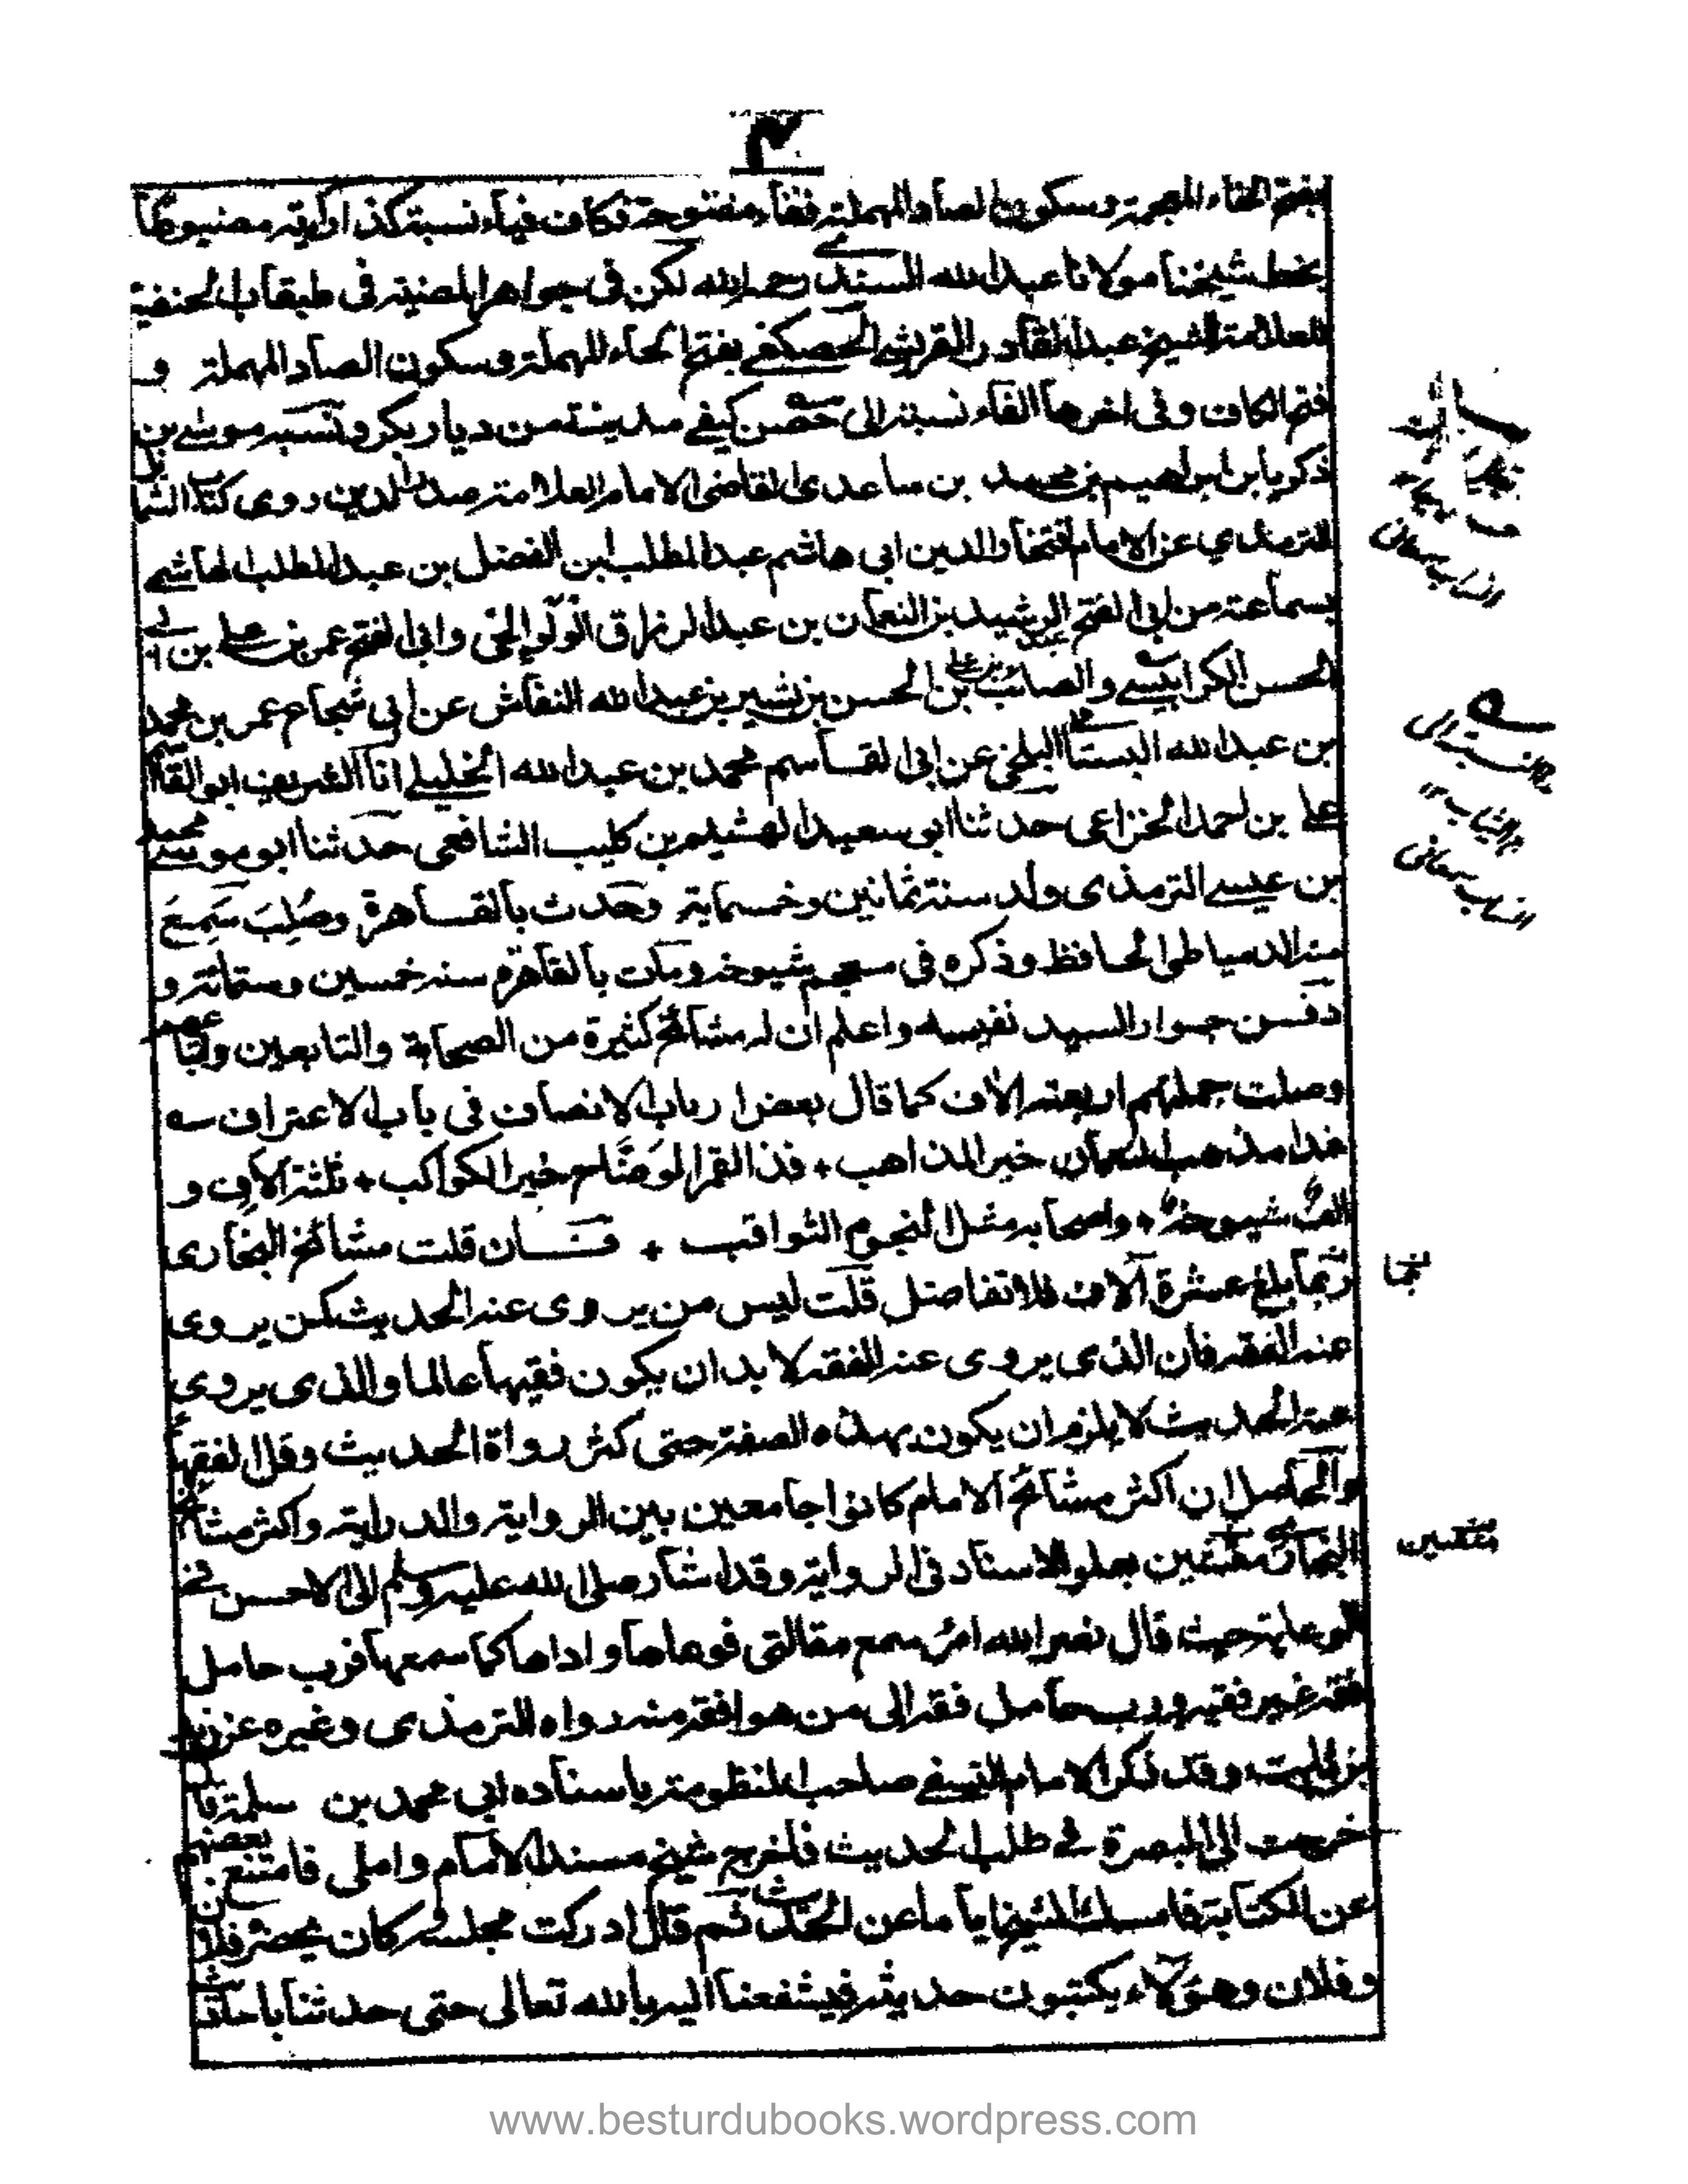 بفتح الخاء المعجمة وسكون الصاد المهملة ففاء مفتوحة فكاف فياء نسبة كذا رأيته مضبوطا
بخط شيخنا مولانا عبد الله السندي رحمه الله لكن فى جواهر المضية فى طبقات الحنفية
للعلامة الشيخ عبد القادر القرشي الحصكفي بفتح الحاء المهملة وسكون الصاد المهملة و
فتح الكاف وفى اخرها الفاء نسبة الى حصن كيفے مدينة من ديار بكر ونسبه موسى بن
ذكريا بن ابراهيم بن محمد بن ساعدى القاضى الامام العلامة صدر الدين روى كتاب الشمائل
للترمذي عن الامام افتخار الدين ابى هاشم عبد المطلب ابن الفضل بن عبد المطلب الهاشمي
بسماعته من ابى الفتح عبد الرشيد بن النعمان بن عبد الرزاق الولوالجى وابى الفتح عمر بن على بن ابى
الحسن الكرابيسے والصائب بن على بن الحسن بن بشير بن عبد الله النقاش عن ابى شجاع عمر بن محمد
بن عبد الله البسطامى البلخى عن ابى القاسم محمد بن عبد الله الخليلے انا الشريف ابو القاسم
على بن احمد الخزاعى حدثنا ابو سعيد الهشيم بن كليب الشافعى حدثنا ابو موسے محمد
بن عيسے الترمذى ولد سنة ثمانين وخمسماية وحدث بالقاهرة وصُلِبَ سَمِعَ
منه الدمياطى الحافظ وذكره فى معجم شيوخه ومات بالقاهرة سنه خمسين وستمائة و
دفن جوار السيد نفيسه واعلم ان له مشائخ كثيرة من الصحابة والتابعين واتباعهم
وصلت جملتهم اربعة الاف كما قال بعض ارباب الانصاف فى باب الاعتراف سه
غدا مذهب النعمان خير المذاهب + فذا القمر الوضّاح خير الكواكب + ثلثة الاف و
الف شيوخه + واصحابه مثل النجوم الثواقب + فان قلت مشائخ البخارى
ربما يبلغ عشرة آلاف فلا تفاضل قلت ليس من يروى عنه الحديث كمن يروى
عنه الفقه فان الذى يروى عنه الفقه لا بد ان يكون فقيها عالما والذى يروى
عنه الحديث لا يلزم ان يكون بهذه الصفة حتى كثر رواة الحديث وقل الفقهاء
والحاصل ان اكثر مشائخ الامام كانوا جامعين بين الرواية والدراية واكثر مشائخ
البخارى معتنين بعلو الاسناد فى الرواية وقد اشار صلى الله عليه وسلم الى الاحسن فى
الرعاية حيث قال نضر الله امرء سمع مقالتى فوعاها واداها كما سمعها فرب حامل
فقه غير فقيه ورب حامل فقه الى من هو افقه منه رواه الترمذى وغيره عن زيد
بن ثابت وقد ذكر الامام النسفے صاحب المنظومة باسناده ابى محمد بن سلمة قال
خرجت الى البصرة فے طلب الحديث فاخرج شيخ مسند الامام واملى فامتنع بعضهم
عن الكتابة فامسك الشيخ اياما عن الحديث ثم قال ادركت مجلسه وكان يحضر فلان
وفلان وهؤلاء يكتبون حديثه فيشفعنا اليه بالله تعالى حتى حدثنا
السمعانى
معتنين
www.besturdubooks.wordpress.com